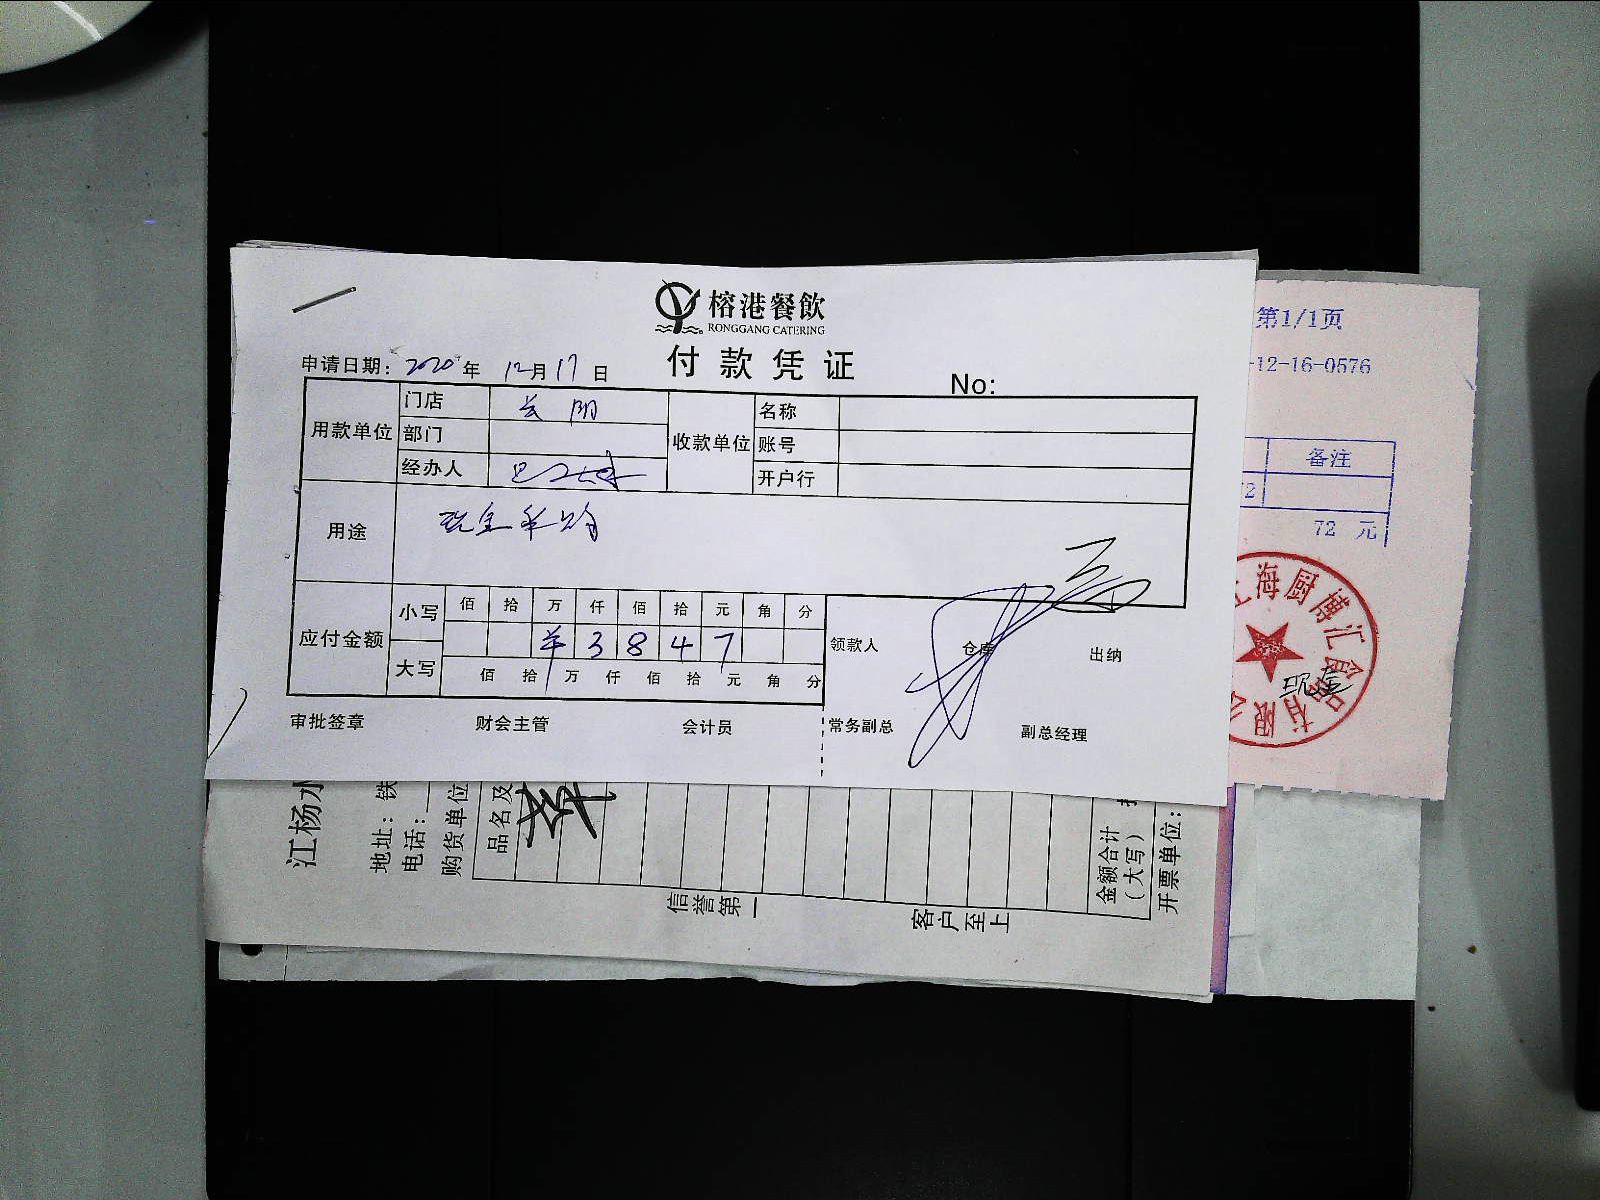 榕港餐飲
RONGGANG CATERING
付款凭证
申请日期: 2020年 12月17日
No:
用款单位 门店 长阳
部门
经办人
收款单位 名称
账号
开户行
用途 现金采购
应付金额 小写 佰 拾 万 仟 佰 拾 元 角 分
¥ 3 8 4 7
大写 佰 拾 万 仟 佰 拾 元 角 分
领款人 仓库 出纳
审批签章 财会主管 会计员 常务副总 副总经理
第1/1页
-12-16-0576
备注
72
72 元
上海厨博汇食品有限公
现金
江杨水
地址: 铁
电话:
购货单位
品名及
金额合计
(大写)
开票单位:
信誉第一
客户至上